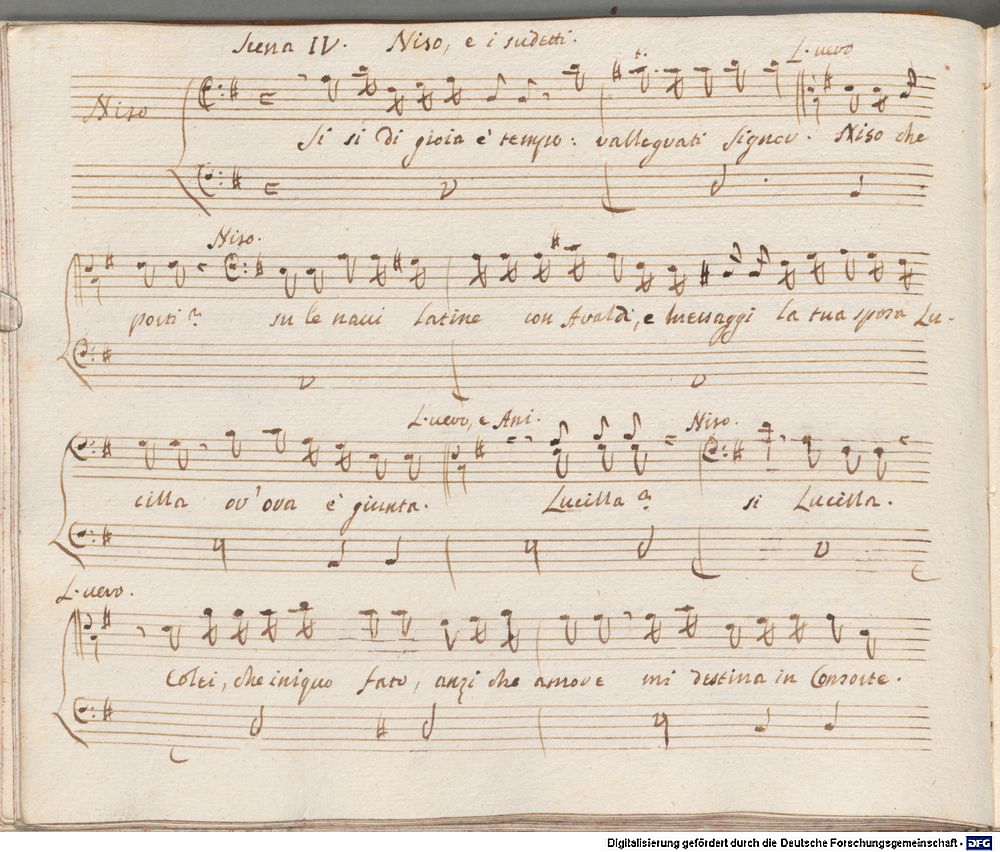 Scena IV. Niso, e i sudetti.
L. vero
Niso
Si si di gioia è tempo: rallegrati Signor. Niso che
Niso.
porti? su le navi latine con Araldi, e messaggi la tua sposa Lu-
L. vero, e Ani. Niso.
cilla or' ora è giunta. Lucilla? si Lucilla.
L. vero.
Colei, che iniquo fato, anzi che amore mi destina in Consorte.
Digitalisierung gefördert durch die Deutsche Forschungsgemeinschaft - DFG